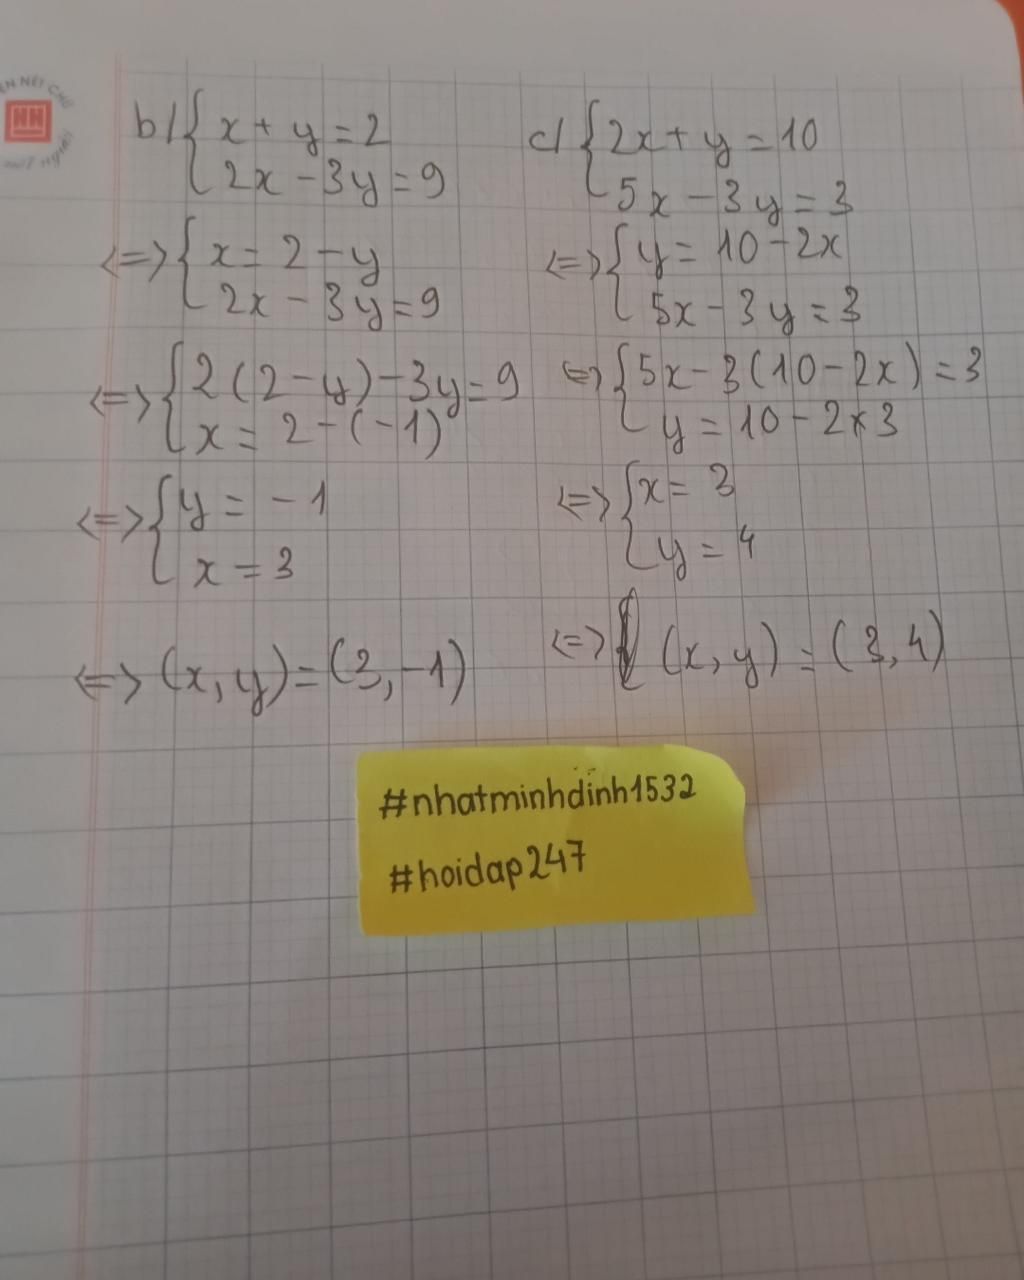 b/ { x + y = 2
2x - 3y = 9
<=> { x = 2 - y
2x - 3y = 9
<=> { 2(2 - y) - 3y = 9
x = 2 - (-1)
<=> { y = -1
x = 3
<=> (x, y) = (3, -1)
c/ { 2x + y = 10
5x - 3y = 3
<=> { y = 10 - 2x
5x - 3y = 3
<=> { 5x - 3(10 - 2x) = 3
y = 10 - 2x3
<=> { x = 3
y = 4
<=> (x, y) = (3, 4)
#nhatminhdinh1532
#hoidap247
NÉT CHỮ
NN